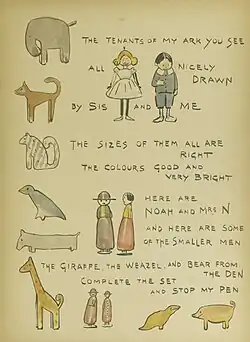 THE TENANTS OF MY ARK YOU SEE
ALL NICELY
DRAWN
BY SIS AND ME
THE SIZES OF THEM ALL ARE
RIGHT
THE COLOURS GOOD AND
VERY BRIGHT
HERE ARE
NOAH AND MRS N
AND HERE ARE SOME
OF THE SMALLER MEN
THE GIRAFFE, THE WEAZEL, AND BEAR FROM
THE DEN
COMPLETE THE SET
AND STOP MY PEN